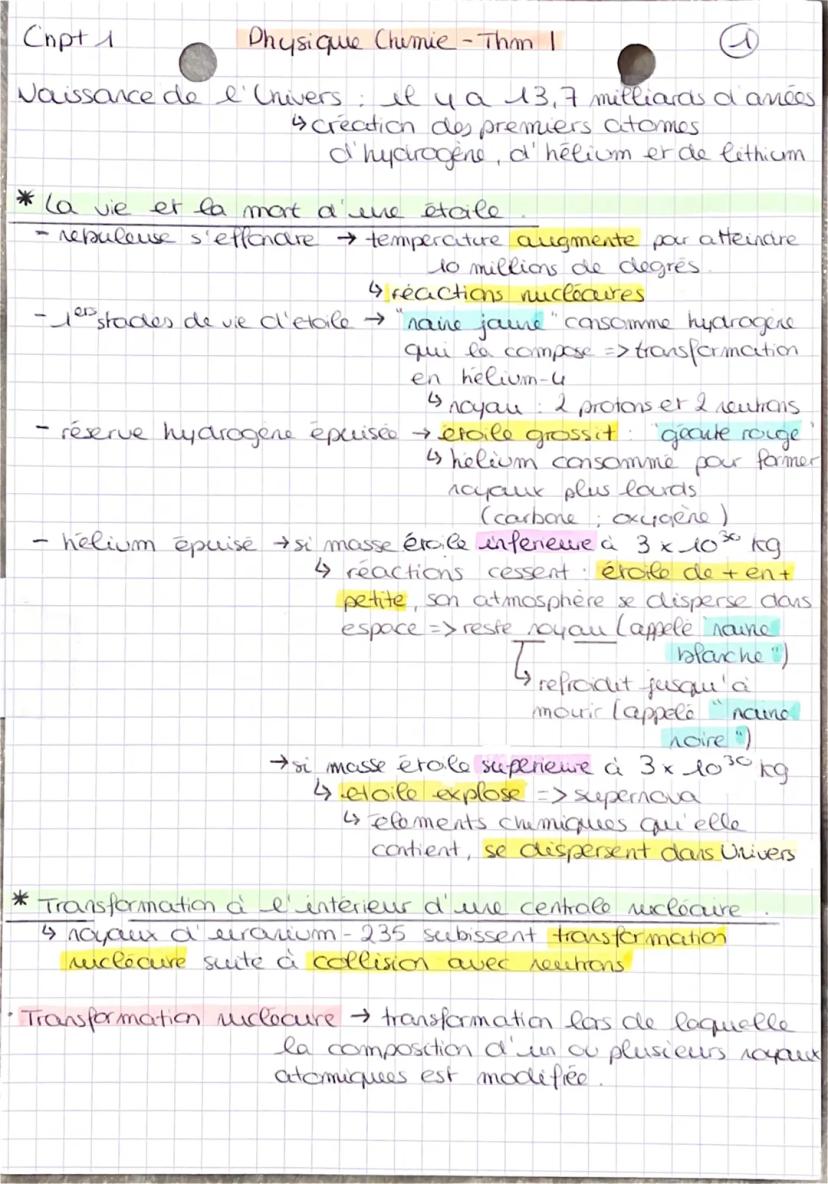 Chpt 1 Physique Chimie - Thm 1 1
Naissance de l'Univers : il y a 13,7 milliards d'années
↳ création des premiers atomes
d'hydrogène, d'hélium et de lithium
* La vie et la mort d'une étoile.
- nébuleuse s'effondre → température augmente pour atteindre
10 millions de degrés
↳ réactions nucléaires
- 1ers stades de vie d'étoile → "naine jaune" consomme hydrogène
qui la compose => transformation
en hélium-4
↳ noyau : 2 protons et 2 neutrons
- réserve hydrogène épuisée → étoile grossit : "géante rouge"
↳ hélium consommé pour former
noyaux plus lourds
(carbone ; oxygène)
- hélium épuisé → si masse étoile inférieure à 3 x 10³⁰ kg
↳ réactions cessent : étoile de + en +
petite, son atmosphère se disperse dans
espace => reste noyau (appelé "naine
blanche")
↳ refroidit jusqu'à
mourir (appelé "naine
noire")
→ si masse étoile supérieure à 3 x 10³⁰ kg
↳ étoile explose => supernova
↳ éléments chimiques qu'elle
contient, se dispersent dans Univers
* Transformation à l'intérieur d'une centrale nucléaire.
↳ noyaux d'uranium-235 subissent transformation
nucléaire suite à collision avec neutrons
· Transformation nucléaire → transformation lors de laquelle
la composition d'un ou plusieurs noyaux
atomiques est modifiée.